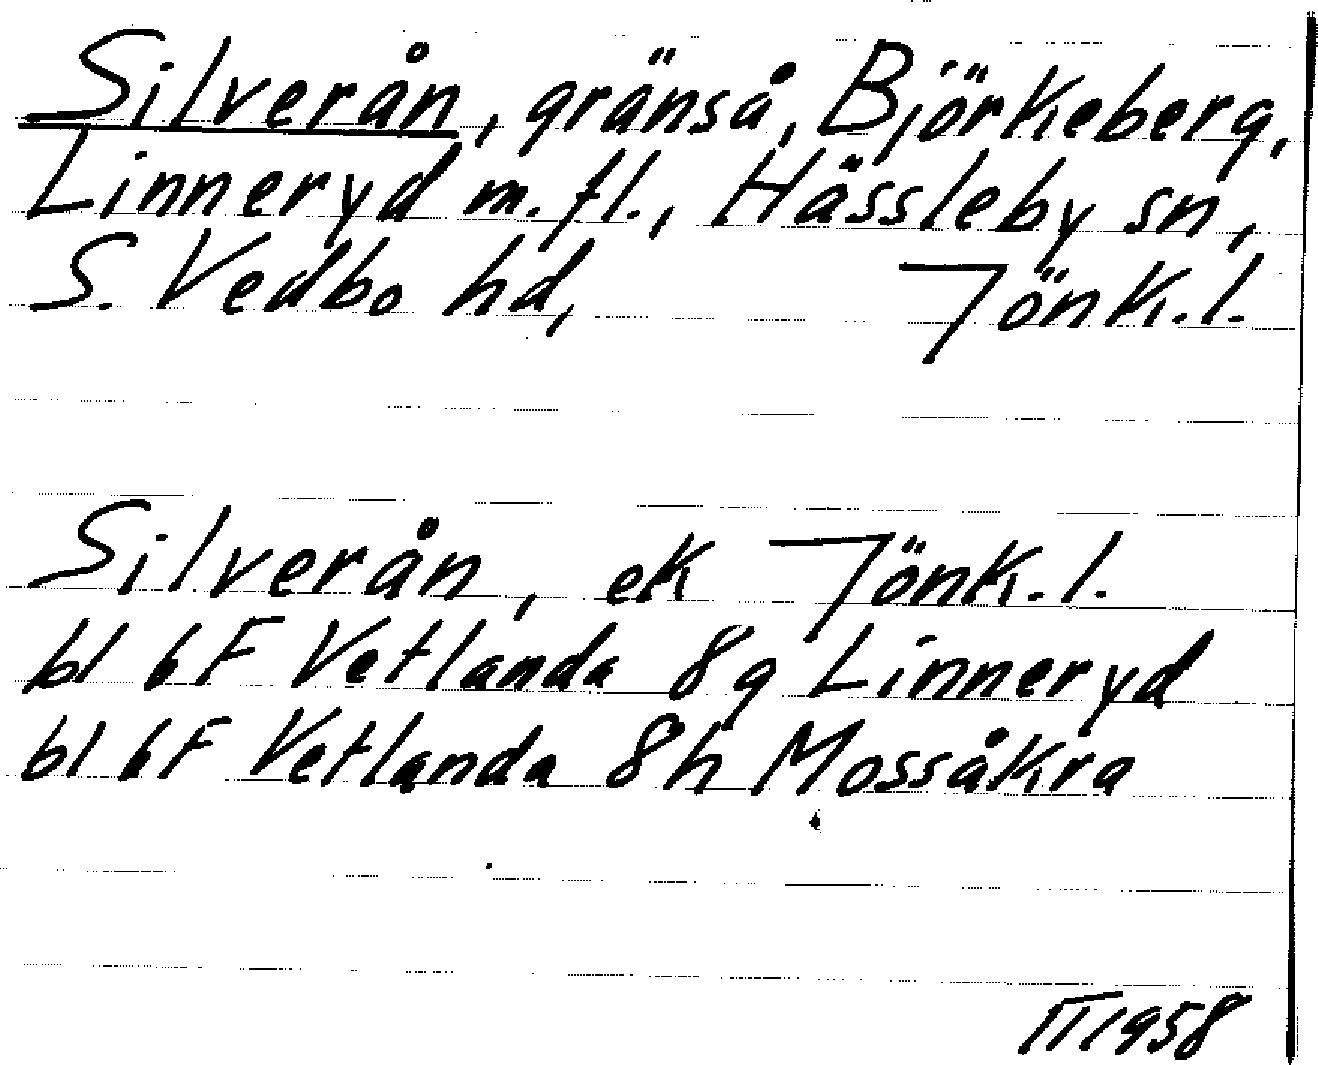 Silverån, gränså, Björkeberg,
Linneryd m.fl., Hässleby sn,
S. Vedbo hd, Jönk.l.
Silverån, ek Jönk.l.
bl 6F Vetlanda 8g Linneryd
bl 6F Vetlanda 8h Mossåkra
1958